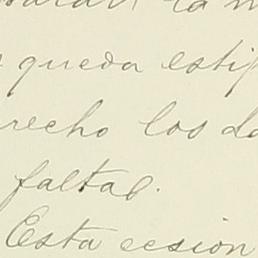 la
queda estip
recho los da
faltas.
Esta cesion